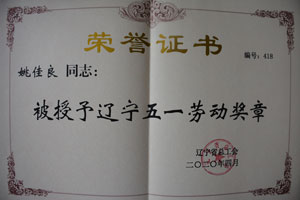 荣誉证书
编号：418
姚佳良 同志：
被授予辽宁五一劳动奖章
辽宁省总工会
二〇二〇年四月